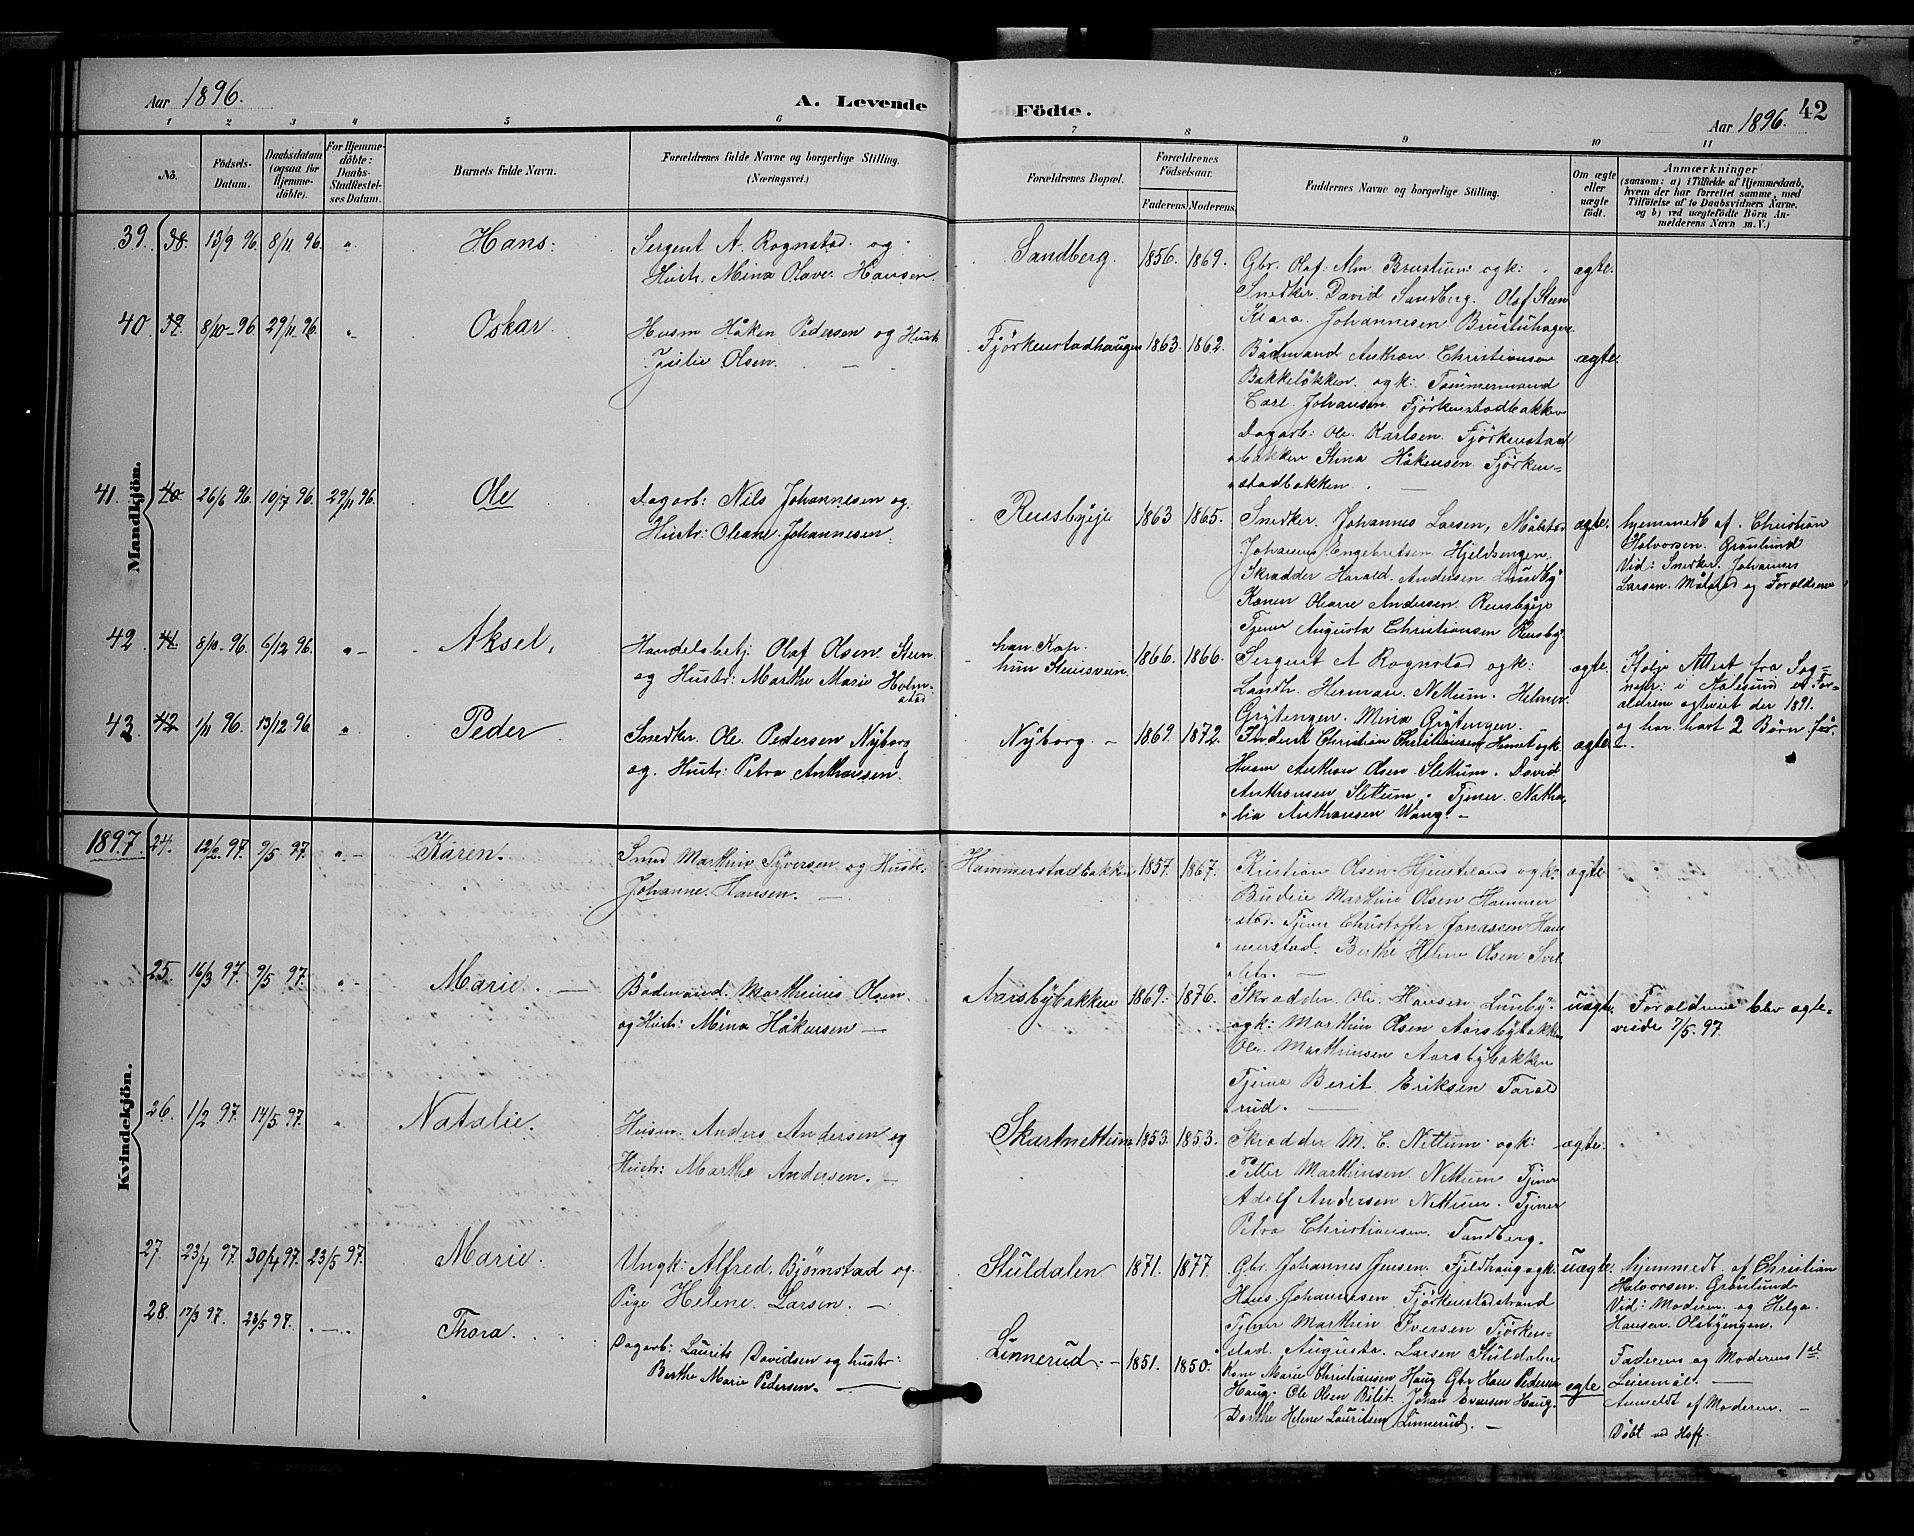 Aar 1896.
A. Levende Födte.
Aar 1896.
42
1 2 3 4 5 6 7 8 9 10 11
No.
Födsels-
Datum.
Daabsdatum
(ogsaa for
Hjemme-
döbte).
For Hjemme-
döbte:
Daabs-
Stadfæstel-
ses Datum.
Barnets fulde Navn.
Forældrenes fulde Navne og borgerlige Stilling.
(Næringsvei.)
Forældrenes Bopæl.
Forældrenes
Födselsaar.
Faderens. Moderens.
Faddernes Navne og borgerlige Stilling.
Om ægte
eller
uægte
födt.
Anmærkninger
(saasom: a) i Tilfælde af Hjemmedaab,
hvem der har forrettet samme, med
Tilföielse af to Daabsvidners Navne,
og b) ved uægtefödte Börn An-
melderens Navn m. V.)
Mandkjön.
39. 38. 13/9 96. 8/11 96. " Hans.
Sergent A. Rognstad og
Hustr. Mina Olave Hansen.
Sandberg. 1856. 1869.
Gbr. Olaf Alm Brustuen ogk:
Snedker David Sandberg. Olaf Steen
Klara Johannesen Brustuhagen
ægte.
40. 39. 8/10 96. 29/11 96. " Oskar.
Husm Håken Pedersen og Hustr
Julie Olsen.
Fjörkenstadhaugen 1863. 1862.
Bådmand Anthon Christiansen
Bakkelökken. ogk: Tömmermand
Carl Johansen Fjörkenstadbakken
Dagarb: Ole Karlsen. Fjörkenstad
bakken Stina Håkensen Fjörken-
stadbakken.
ægte.
41. 40. 26/6 96. 10/7 96. 29/11 96. Ole
Dagarb: Nils Johannesen og
Hustr: Oleane Johannesen.
Reusbyeje 1863 1865.
Snedker Johannes Larsen, Målstad
Johannes Engebretsen Hjeldsengen.
Skrædder Harald Andersen Lundby
Konen Oleane Andersen Reusbyeje
Tjener Augusta Christiansen Reusby.
ægte.
hjemmedb af Christian
Halvorsen Grönlund
Vid: Snedker Johannes
Larsen Målstad og Forældrene
42. 41. 8/10 96. 6/12 96. " Aksel.
Handelsbetj Olaf Olsen Steen
og Hustr: Marthe Marie Holm-
stad
han Kap.
hun Stensveen 1866. 1866.
Sergent A Rognstad ogk:
Landh. Herman Nettum. Helmer
Grytengen. Mina Grytengen.
ægte.
Ifölge Attest fra Sog-
nepr: i Aalesund er For-
ældrene egteviet der 1891.
og har havt 2 Börn för.
43. 42. 1/11 96. 13/12 96. " Peder
Snedker Ole Pedersen Nyborg
og Hustr: Petra Anthonsen.
Nyborg. 1869. 1872.
Inderst Christian Christiansen ogk
Husm Anthon Olsen Slettum. David
Anthonsen Slettum. Tjener Natha-
lia Anthonsen Wang.
ægte.
1897.
Kvindekjön.
24. 12/2 97. 9/5 97. " Karen.
Smed Marthin Syversen og Hustr:
Johanne Hansen.
Hammerstadbakken 1857. 1867.
Kristian Olsen ogk.
Budeie Marthine Olsen Hammer
stad. Tjener Christoffer Jonassen Ham
merstad. Berthe Helene Olsen
ægte.
25. 16/3 97. 9/5 97. " Marie.
Bådmand Marthinus Olsen
og Hustr: Mina Håkensen
Aarsbybakken 1869. 1876.
Skrædder Ole Hansen Lundby
ogk: Marthin Olsen Aarsbybakken
Ole Marthinsen Aarsbybakken
Tjener Berit Eriksen Farald
rud.
uægte.
Forældrene blev egte-
viede 7/5 97.
26. 1/2 97. 14/5 97. " Natalie.
Husm Anders Andersen og
Hustr: Marthe Andersen.
Skartnettum 1853. 1853.
Skrædder M. C. Nettum ogk:
Petter Marthinsen Nettum Tjener
Adolf Andersen Nettum. Tjener
Petra Christiansen Sandberg.
ægte.
27. 23/4 97. 30/4 97. 23/5 97. Marie.
Ungk: Alfred Bjørnstad og
Pige Helene Larsen.
Stuldalen 1871. 1877.
Gbr. Johannes Jensen Fjeldhaug ogk.
Hans Johannesen Fjörkenstadstrand
Tjener Marthin Iversen Fjörken-
stad. Augusta Larsen Stuldalen
uægte.
hjemmedt af Christian
Halvorsen Grönlund
Vid: Moderen og Helga
Hansen Olsbyengen.
Faderens og Moderens 1ste
Leiermål.
Anmeldt af Moderen.
28. 17/3 97. 23/5 97. Thora.
Dagarb: Laurits Davidsen og hustr:
Berthe Marie Pedersen.
Linnerud. 1851. 1850.
Kone Marie Christiansen Haug Gbr Hans Pedersen
Haug. Ole Olsen Bilit. Johan Evensen Haug.
Dorthe Helene Lauritsen Linnerud.
egte.
Döbt ved Hoff.